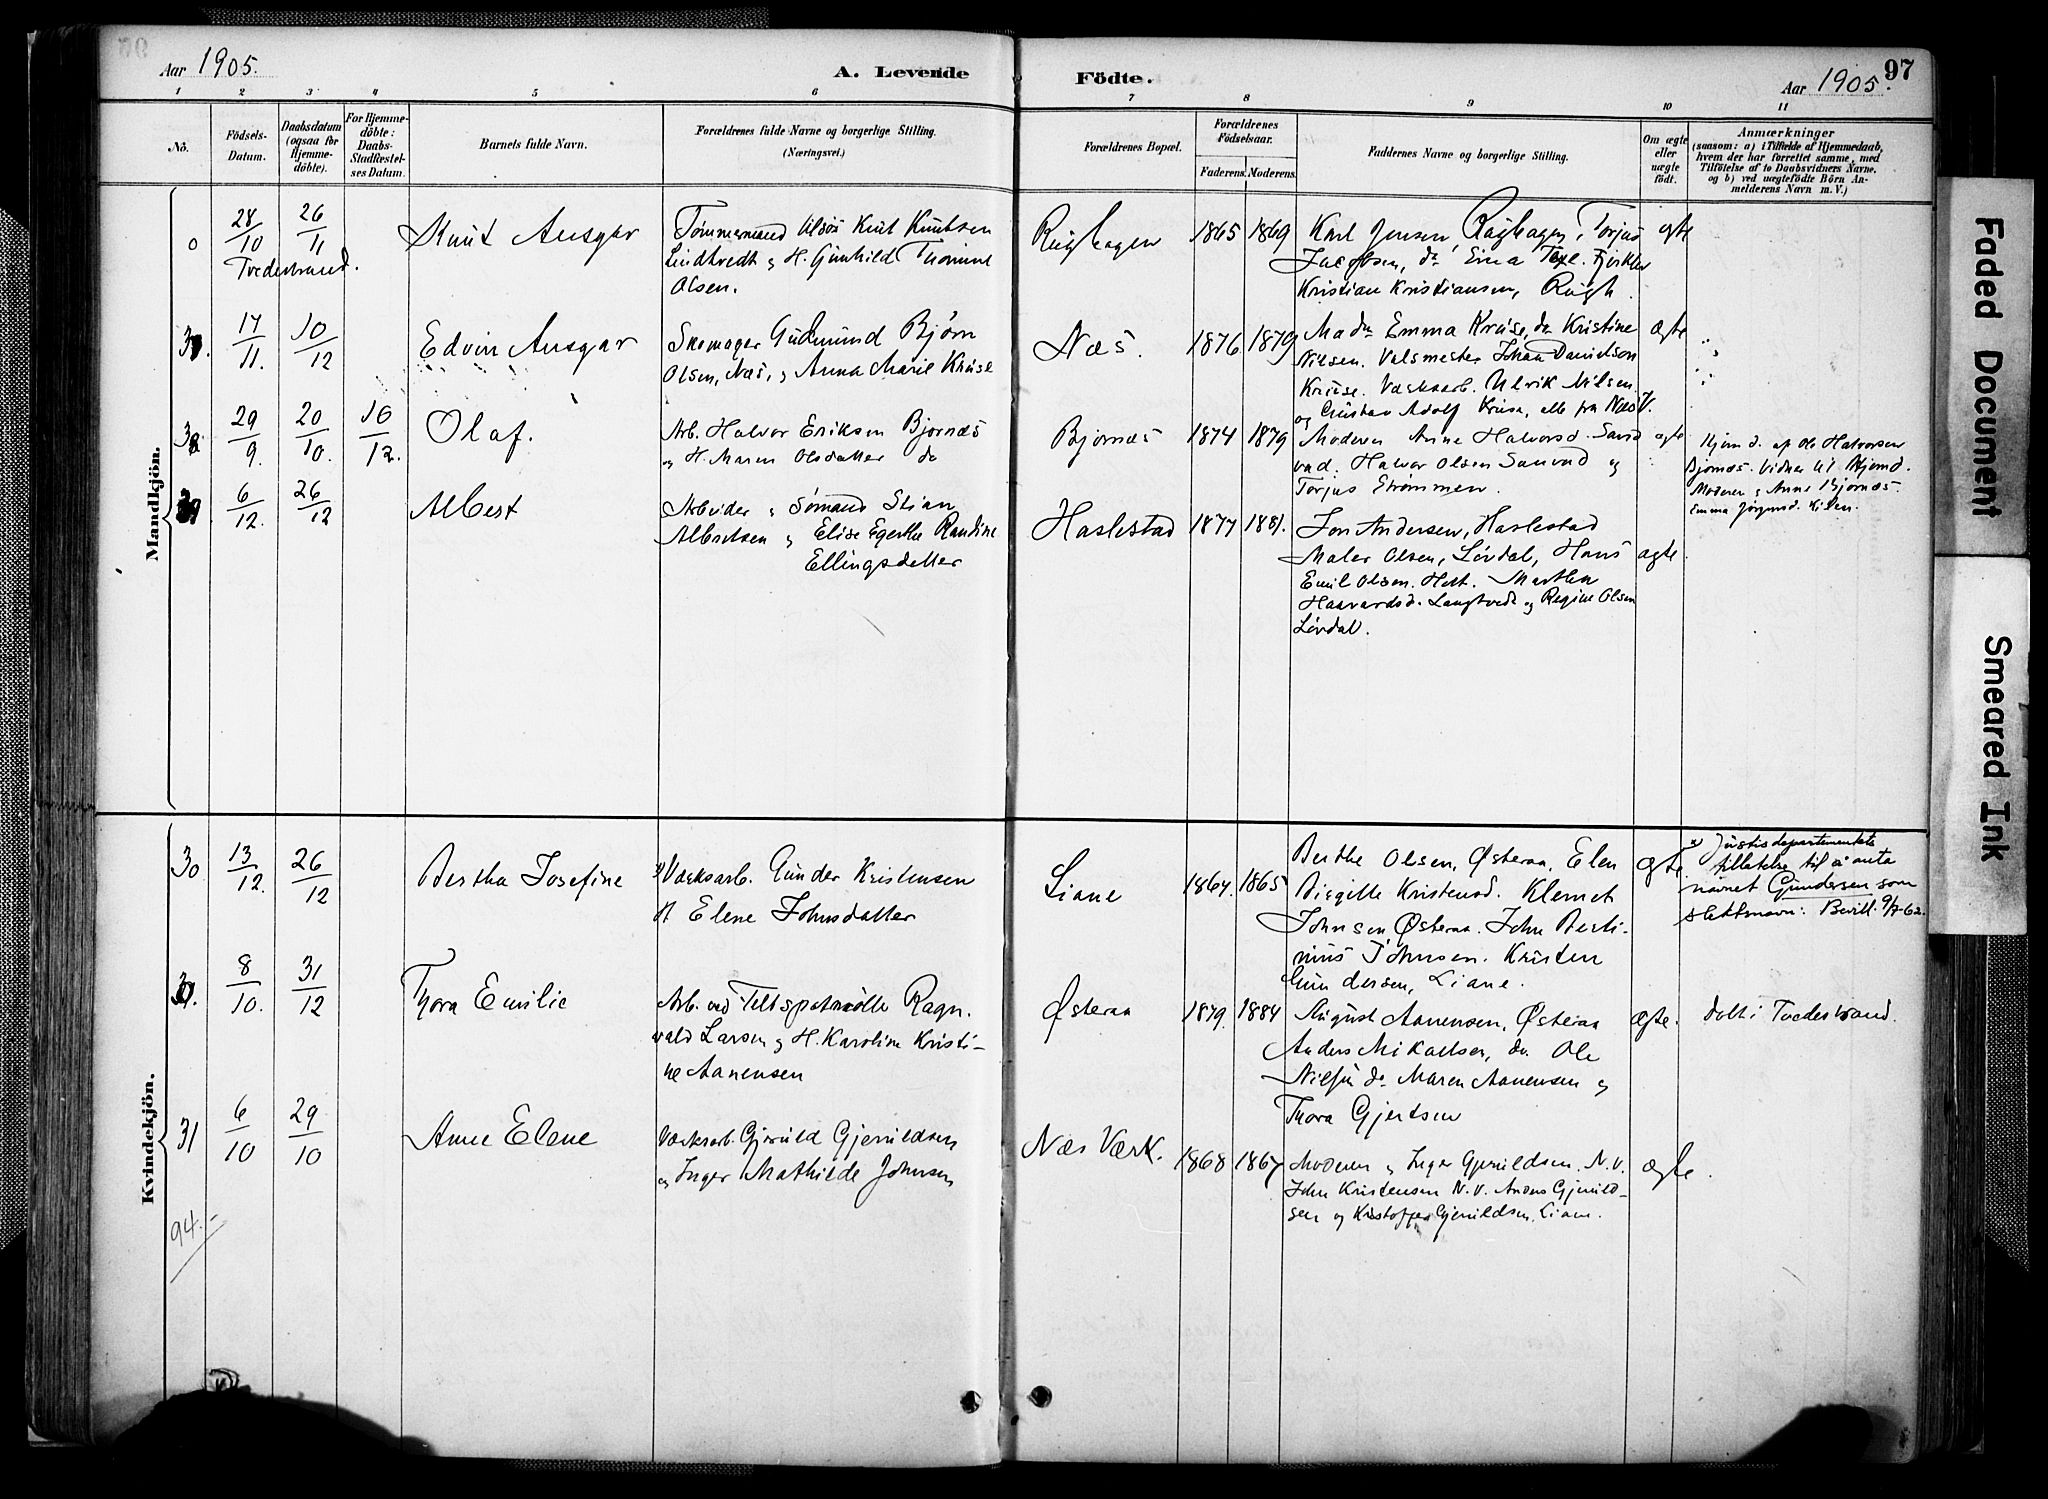 Aar 1905.
A. Levende
Födte.
Aar 1905.
97
1 2 3 4 5 6 7 8 9 10 11
No.
Födsels-Datum.
Daabsdatum (ogsaa for Hjemme-döbte).
For Hjemme-döbte: Daabs-Stadfæstel-ses Datum.
Barnets fulde Navn.
Forældrenes fulde Navne og borgerlige Stilling.
(Næringsvei.)
Forældrenes Bopæl.
Forældrenes Födselsaar.
Faderens. Moderens.
Faddernes Navne og borgerlige Stilling.
Om ægte eller uægte födt.
Anmærkninger
(saasom: a) i Tilfælde af Hjemmedaab,
hvem der har forrettet samme, med
Tilföielse af to Daabsvidners Navne.
og b) ved uægtefödte Börn An-
melderens Navn m. V.)
Mandkjön.
0 28/10 26/11 Knut Ansgar
Tvedestrand.
Tømmermand Knut Knutsen
Lindtvedt og H. Gunhild
Olsen.
1865 1869
Karl Jensen, Torjus
Jacobsen, do
Kristian Kristiansen,
ægte
17/11. 10/12 Edvin Ansgar
Skomager Gudmund Bjørn
Olsen, Næs, og Anna Marie Kruse
Næs. 1876 1879
Emma Kruse, do Kristine
Nilsen. Valsmester Johan Davidson
Kruse. Ulrik Nilsen
og Gustav Adolf Kruse, alle fra Næs V.
ægte
29/9. 20/10. 10/12. Olaf.
Arb. Halvor Eriksen Bjørnæs
og H. Maren Olsdatter do
Bjørnæs 1874 1879
Moderen Anne Halvorsd.
Halvor Olsen og
Torjus Strømmen.
ægte
Hjem d. af Ole Halvorsen
Bjørnæs. Vidner til Hjemd.
Moderen og Anne Bjørnæs.
Emma Jørgensd. Kilen.
6/12. 26/12 Albert
Arbeider og Sømand Stian
Albretsen og Elise Randine
Ellingsdatter
Haslestad 1877 1881.
Jon Andersen, Haslestad
Maler Olsen, Løvdal, Hans
Emil Olsen. Martha
Haavardsd. og Regine Olsen
Løvdal.
ægte
Kvindekjön.
30 13/12. 26/12 Bertha Josefine
x) Værksarb. Gunder Kristensen
H Elene Johnsdatter
Liane 1864. 1865
Berthe Olsen, Østeraa, Elen
Birgitte Kristensd. Klemet
Johnsen Østeraa. John Berti-
nius Johnsen. Kristen
Gundersen, Liane.
ægte
x) Justisdepartementets
tillatelse til å anta
navnet Gundersen som
slektsnavn: Bevill. 9/7-62.
8/10. 31/12 Thora Emilie
Arb. ved Feltspatmølle Ragn-
vald Larsen og H. Karoline Kristi-
ne Aanensen
Østeraa 1879. 1884
August Aanensen, Østeraa
Anders Mikaelsen, do Ole
Nilsen do Maren Aanensen og
Thora Gjertsen
ægte.
døbt i Tvedestrand.
31 6/10 29/10 Anne Elene
Værksarb. Gjeruld Gjeruldsen
og Inger Mathilde Johnsen
Næs Værk. 1868 1867
Moderen og Inger Gjeruldsen. N.V.
John Kristensen N.V. Anders Gjeruld-
sen og Kristoffer Gjeruldsen, Liane.
ægte
94.-
Faded Document
Smeared Ink